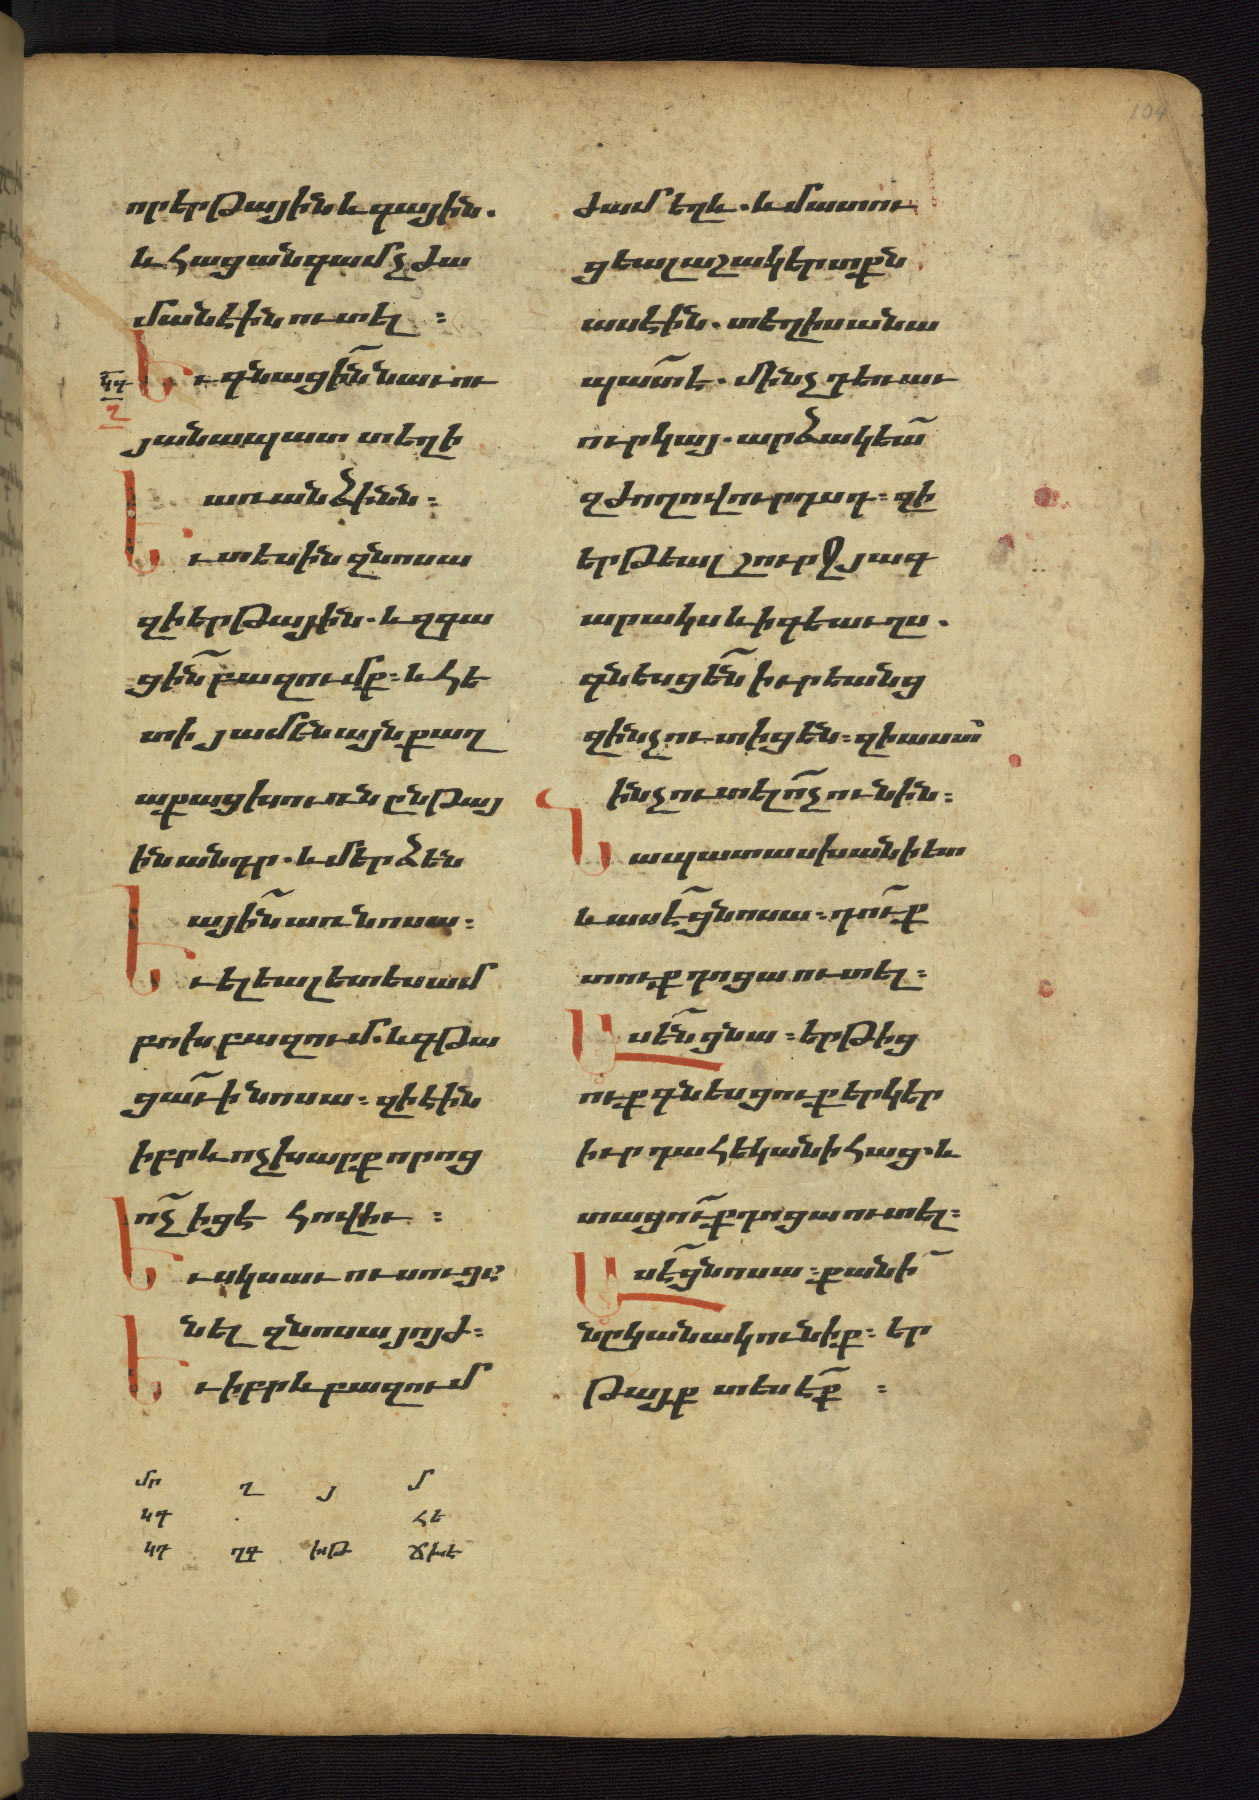 որ երթային և գային.
և հաց անգամ չժա
մանէին ուտել :
Եւ գնացին̃ նաւու
կգ
ղ
յանապատ տեղի
առանձինն :
Եւ տեսին զնոսա
զի երթային. և զգա
ցին̃ բազումք : և հե
տի յամենայն քաղ
աքաց խուռն ընթաց
ին անդր. և մերձեն
ային̃ առ նոսա :
Եւ ելեալ ետես ամ
բոխ բազում. և գթա
ցաւ̃ ի նոսա : զի էին
իբրև ոչխարք որոց
ոչ̃ իցէ հովիւ :
Եւ սկսաւ ուսուցա
նել զնոսա յոյժ :
Եւ իբրև բազում
ժամ եղև. և մատու
ցեալ աշակերտքն
ասէին. տեղիս անա
պատ̃ է. մինչդեռ աւ
ուր կայ. արձակեա̃
զժողովուրդսդ : զի
երթեալ շուրջ յագ
արակս և ի գեաւղս.
գնեսցեն̃ իւրեանց
զինչ ուտիցեն : զի աստ̃
ինչ ուտել ոչ̃ ունին :
Նա պատասխանի ետ
և ասէ ց̃նոսա : դու̃ք
տուք դոցա ուտել :
Ասեն̃ ցնա : երթից
ուք գնեսցուք երկեր
իւր դահեկանի հաց. և
տացու̃ք դոցա ուտել :
Ասէ ց̃նոսա : քանի̃
նըկանակ ունիք : եր
թայք տեսէք̃ :
մր ղ յ մ
կգ . հե
կդ ղգ խթ ճխե
104